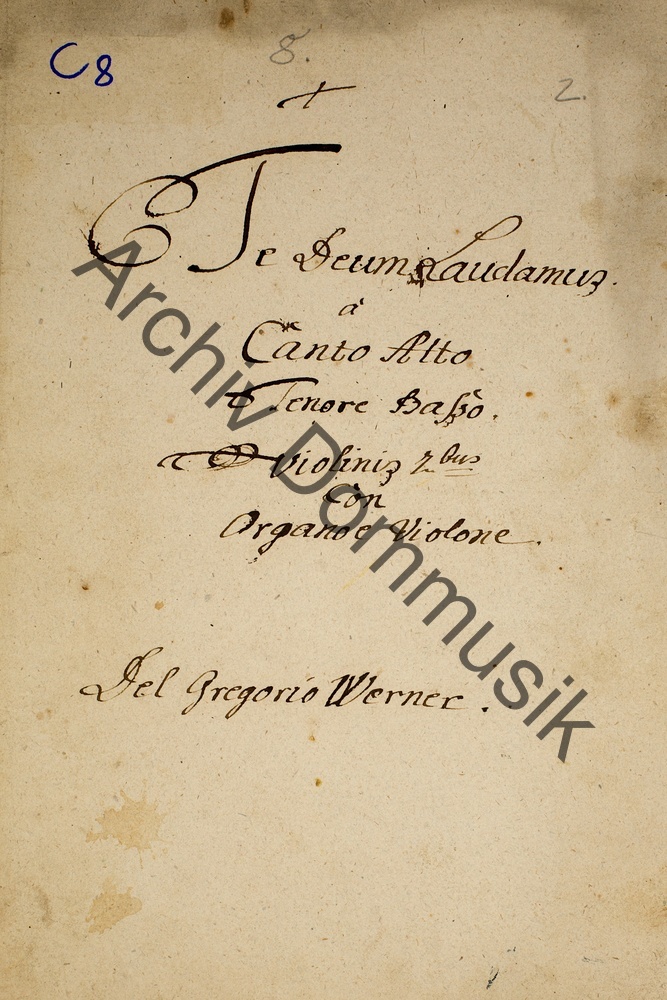 C8
8.
2.
Te Deum Laudamus.
à
Canto Alto
Tenore Basso.
Violinis 2bus
Con
Organo e Violone.
Del Gregorio Werner.
Archiv Dommusik